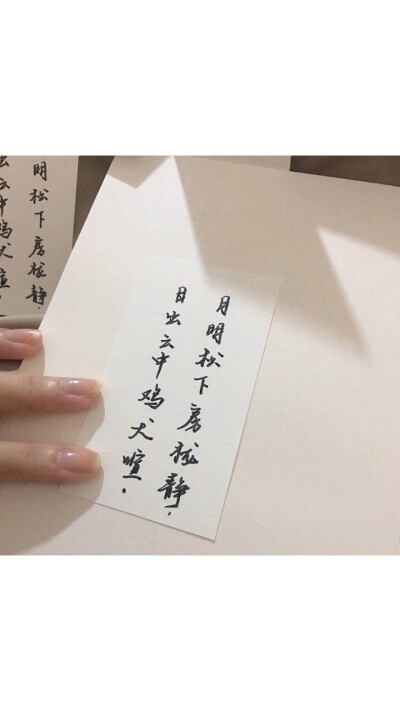 月明松下房栊静，
日出云中鸡犬喧.
明松下房栊静.
云中鸡犬喧.